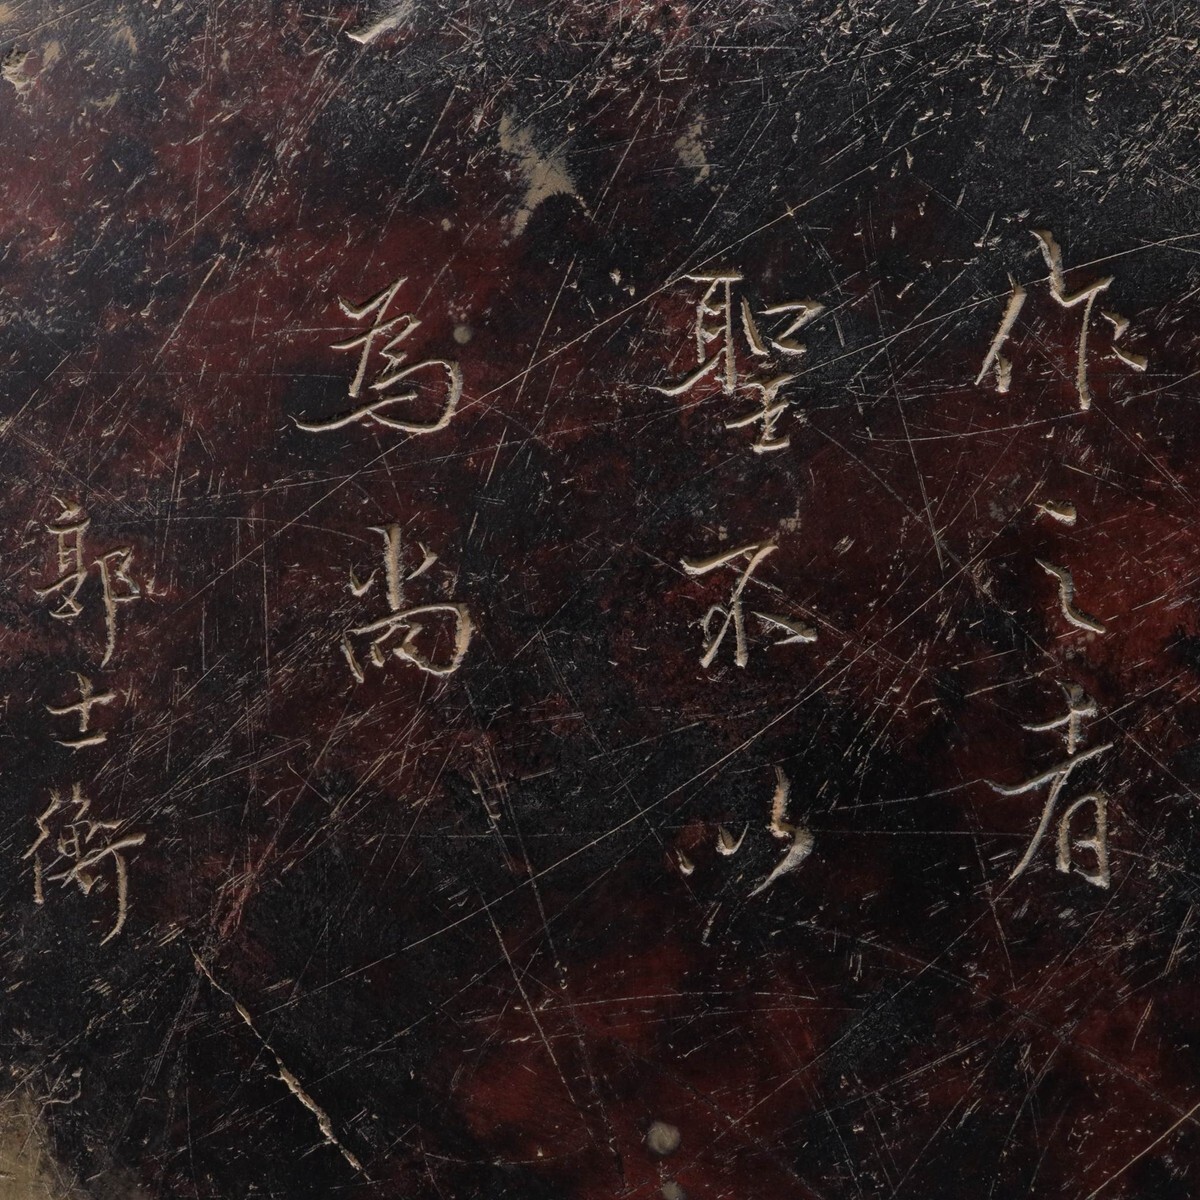 作之者
聖不以
為尚
郭士衡